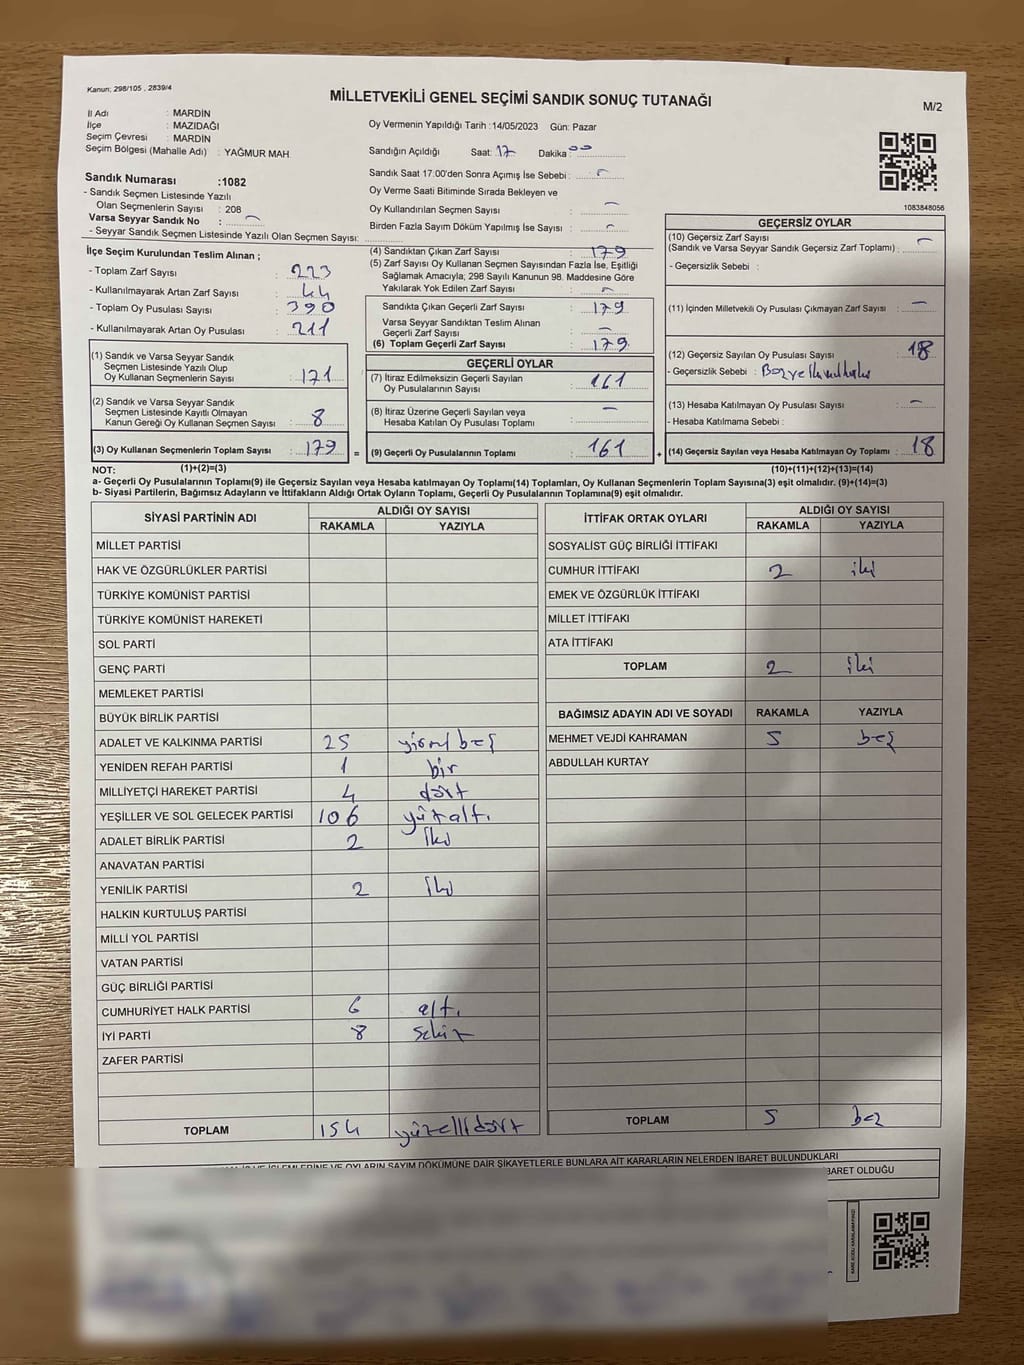 Kanun; 298/105 , 2839/4
MİLLETVEKİLİ GENEL SEÇİMİ SANDIK SONUÇ TUTANAĞI
M/2
İl Adı : MARDİN
İlçe : MAZIDAĞI
Seçim Çevresi : MARDİN
Seçim Bölgesi (Mahalle Adı) : YAĞMUR MAH.
Oy Vermenin Yapıldığı Tarih :14/05/2023 Gün: Pazar
Sandığın Açıldığı Saat: 17 Dakika: 00
Sandık Saat 17:00'den Sonra Açımış İse Sebebi : -
Oy Verme Saati Bitiminde Sırada Bekleyen ve
Oy Kullandırılan Seçmen Sayısı : -
Birden Fazla Sayım Döküm Yapılmış İse Sayısı : -
Sandık Numarası :1082
- Sandık Seçmen Listesinde Yazılı
Olan Seçmenlerin Sayısı : 208
Varsa Seyyar Sandık No : -
- Seyyar Sandık Seçmen Listesinde Yazılı Olan Seçmen Sayısı:
1083848056
İlçe Seçim Kurulundan Teslim Alınan ;
- Toplam Zarf Sayısı : 223
- Kullanılmayarak Artan Zarf Sayısı : 44
- Toplam Oy Pusulası Sayısı : 390
- Kullanılmayarak Artan Oy Pusulası : 211
(1) Sandık ve Varsa Seyyar Sandık
Seçmen Listesinde Yazılı Olup
Oy Kullanan Seçmenlerin Sayısı : 171
(2) Sandık ve Varsa Seyyar Sandık
Seçmen Listesinde Kayıtlı Olmayan
Kanun Gereği Oy Kullanan Seçmen Sayısı : 8
(3) Oy Kullanan Seçmenlerin Toplam Sayısı : 179 =
(1)+(2)=(3)
(4) Sandıktan Çıkan Zarf Sayısı : 179
(5) Zarf Sayısı Oy Kullanan Seçmen Sayısından Fazla İse, Eşitliği
Sağlamak Amacıyla; 298 Sayılı Kanunun 98. Maddesine Göre
Yakılarak Yok Edilen Zarf Sayısı : -
Sandıkta Çıkan Geçerli Zarf Sayısı : 179
Varsa Seyyar Sandıktan Teslim Alınan
Geçerli Zarf Sayısı : -
(6) Toplam Geçerli Zarf Sayısı : 179
GEÇERLİ OYLAR
(7) İtiraz Edilmeksizin Geçerli Sayılan
Oy Pusulalarının Sayısı : 161
(8) İtiraz Üzerine Geçerli Sayılan veya
Hesaba Katılan Oy Pusulası Toplamı : -
(9) Geçerli Oy Pusulalarının Toplamı : 161 +
GEÇERSİZ OYLAR
(10) Geçersiz Zarf Sayısı
(Sandık ve Varsa Seyyar Sandık Geçersiz Zarf Toplamı) : -
- Geçersizlik Sebebi :
(11) İçinden Milletvekili Oy Pusulası Çıkmayan Zarf Sayısı : -
(12) Geçersiz Sayılan Oy Pusulası Sayısı : 18
- Geçersizlik Sebebi :
(13) Hesaba Katılmayan Oy Pusulası Sayısı : -
- Hesaba Katılmama Sebebi :
(14) Geçersiz Sayılan veya Hesaba Katılmayan Oy Toplamı : 18
(10)+(11)+(12)+(13)=(14)
NOT:
a- Geçerli Oy Pusulalarının Toplamı(9) ile Geçersiz Sayılan veya Hesaba katılmayan Oy Toplamı(14) Toplamları, Oy Kullanan Seçmenlerin Toplam Sayısına(3) eşit olmalıdır. (9)+(14)=(3)
b- Siyasi Partilerin, Bağımsız Adayların ve İttifakların Aldığı Ortak Oyların Toplamı, Geçerli Oy Pusulalarının Toplamına(9) eşit olmalıdır.
SİYASİ PARTİNİN ADI ALDIĞI OY SAYISI
RAKAMLA YAZIYLA
MİLLET PARTİSİ
HAK VE ÖZGÜRLÜKLER PARTİSİ
TÜRKİYE KOMÜNİST PARTİSİ
TÜRKİYE KOMÜNİST HAREKETİ
SOL PARTİ
GENÇ PARTİ
MEMLEKET PARTİSİ
BÜYÜK BİRLİK PARTİSİ
ADALET VE KALKINMA PARTİSİ 25 yirmi beş
YENİDEN REFAH PARTİSİ 1 bir
MİLLİYETÇİ HAREKET PARTİSİ 4 dört
YEŞİLLER VE SOL GELECEK PARTİSİ 106 yüzaltı
ADALET BİRLİK PARTİSİ 2 iki
ANAVATAN PARTİSİ
YENİLİK PARTİSİ 2 iki
HALKIN KURTULUŞ PARTİSİ
MİLLİ YOL PARTİSİ
VATAN PARTİSİ
GÜÇ BİRLİĞİ PARTİSİ
CUMHURİYET HALK PARTİSİ 6 altı
İYİ PARTİ 8 sekiz
ZAFER PARTİSİ
TOPLAM 154 yüzellidört
İTTİFAK ORTAK OYLARI ALDIĞI OY SAYISI
RAKAMLA YAZIYLA
SOSYALİST GÜÇ BİRLİĞİ İTTİFAKI
CUMHUR İTTİFAKI 2 iki
EMEK VE ÖZGÜRLÜK İTTİFAKI
MİLLET İTTİFAKI
ATA İTTİFAKI
TOPLAM 2 iki
BAĞIMSIZ ADAYIN ADI VE SOYADI RAKAMLA YAZIYLA
MEHMET VEJDİ KAHRAMAN 5 beş
ABDULLAH KURTAY
TOPLAM 5 beş
İŞLEMLERİNE VE OYLARIN SAYIM DÖKÜMÜNE DAİR ŞİKAYETLERLE BUNLARA AİT KARARLARIN NELERDEN İBARET BULUNDUKLARI
İBARET OLDUĞU